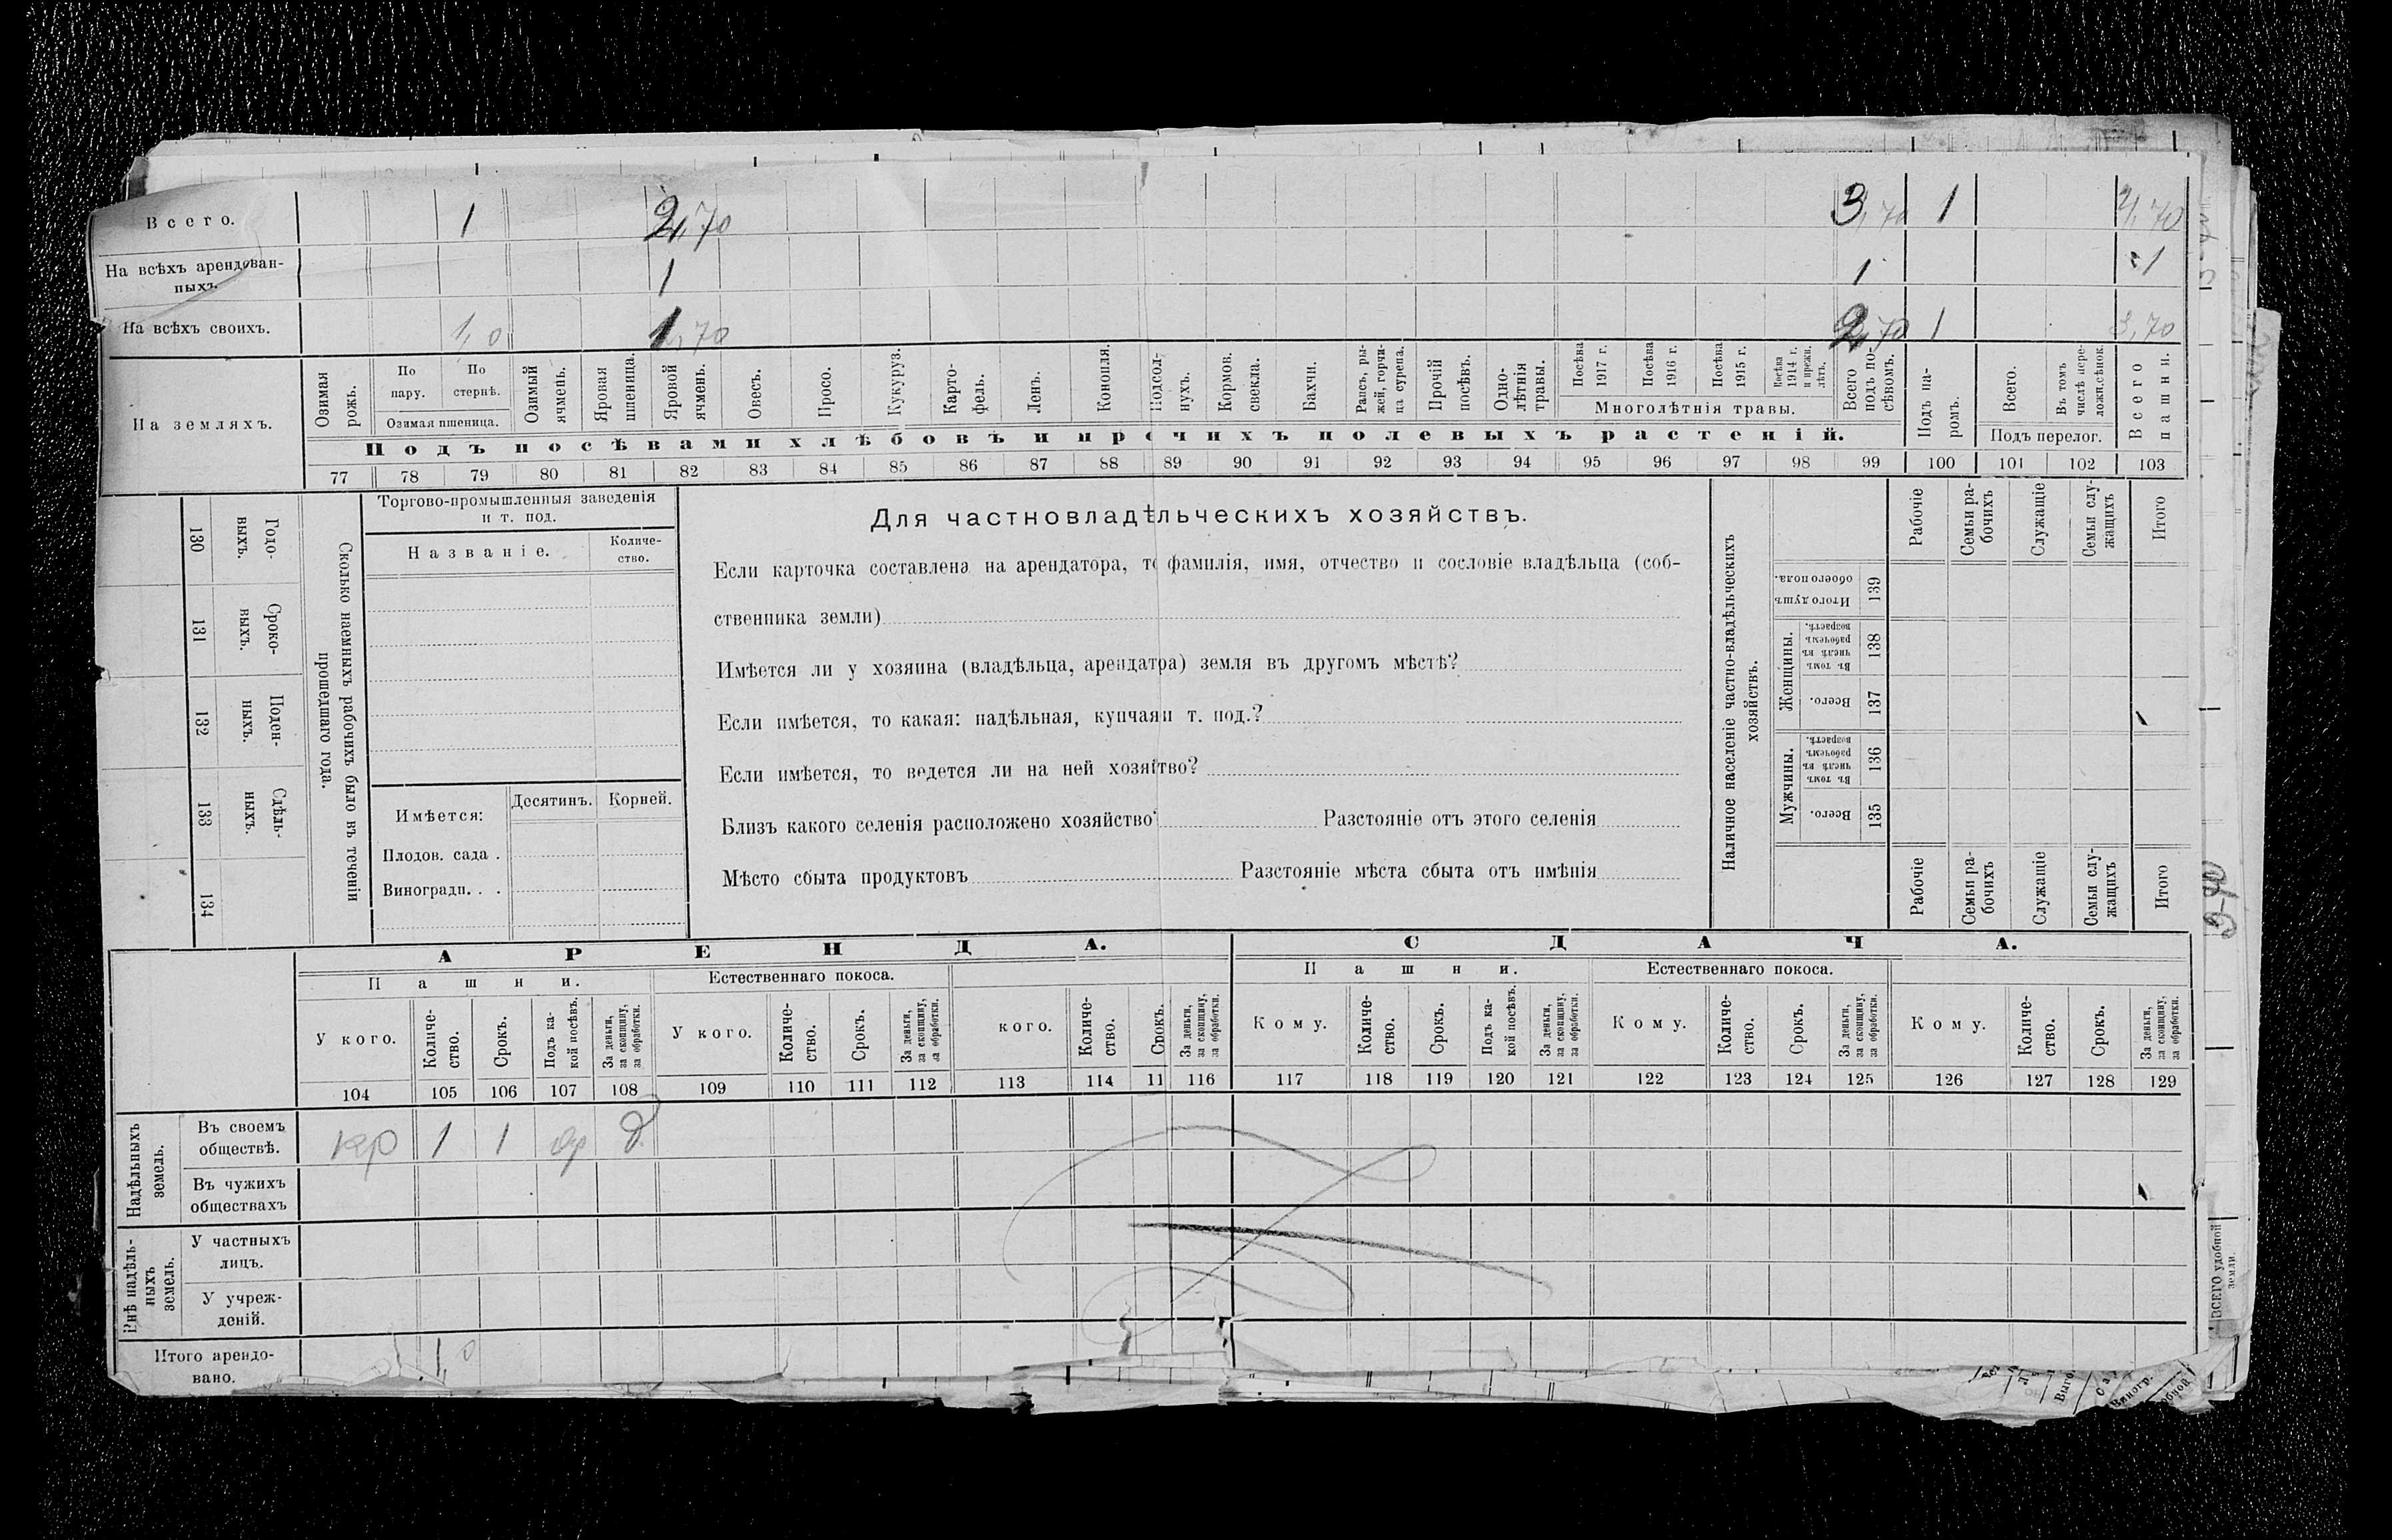 Всего. 1 2,70 3,70 1 4,70
На всѣхъ арендован-
ныхъ. 1 1 1
На всѣхъ своихъ. 1,0 1,70 2,70 1 3,70
На земляхъ.
Озимая рожь.
По пару.
По стернѣ.
Озимая пшеница.
Озимый ячмень.
Яровая пшеница.
Яровой ячмень.
Овесъ.
Просо.
Кукуруз.
Карто-
фель.
Ленъ.
Конопля.
Подсол-
нухъ.
Кормов.
свекла.
Бахчи.
Рапсъ, ры-
жей, горчи-
ца сурепа.
Прочій
посѣвъ.
Одно-
лѣтнія
травы.
Посѣва
1917 г.
Посѣва
1916 г.
Посѣва
1915 г.
Посѣва
1914 г.
и прежн.
лѣтъ.
Многолѣтнія травы.
Всего
подъ по-
сѣвомъ.
Подъ па-
ромъ.
Всего.
Въ томъ
числѣ пере-
ложн.сѣнок.
Подъ перелог.
Всего
пашни.
Подъ посѣвами хлѣбовъ и прочихъ полевыхъ растеній.
77 78 79 80 81 82 83 84 85 86 87 88 89 90 91 92 93 94 95 96 97 98 99 100 101 102 103
130 Годо-
выхъ.
131 Сроко-
выхъ.
132 Поден-
ныхъ.
133 Сдѣль-
ныхъ.
134
Сколько наемныхъ рабочихъ было въ теченіи
прошедшаго года.
Торгово-промышленныя заведенія
и т. под.
Названіе.
Количе-
ство.
Имѣется:
Десятинъ.
Корней.
Плодов. сада .
Виноградн. . .
Для частновладѣльческихъ хозяйствъ.
Если карточка составлена на арендатора, то фамилія, имя, отчество и сословіе владѣльца (соб-
ственника земли)
Имѣется ли у хозяина (владѣльца, арендатра) земля въ другомъ мѣстѣ?
Если имѣется, то какая: надѣльная, купчая и т. под.?
Если имѣется, то ведется ли на ней хозяйтво?
Близъ какого селенія расположено хозяйство Разстояніе отъ этого селенія
Мѣсто сбыта продуктовъ Разстояніе мѣста сбыта отъ имѣнія
Наличное населеніе частно-владѣльческихъ
хозяйствъ.
Рабочіе
Семьи ра-
бочихъ
Служащіе
Семьи слу-
жащихъ
Итого
Итого душъ
обоего пола.
139
Женщины.
Въ томъ
числѣ въ
рабочемъ
возрастѣ.
138
Всего.
137
Мужчины.
Въ томъ
числѣ въ
рабочемъ
возрастѣ.
136
Всего.
135
Рабочіе
Семьи ра-
бочихъ
Служащіе
Семьи слу-
жащихъ
Итого
АРЕНДА. СДАЧА.
Пашни. Естественнаго покоса. Пашни. Естественнаго покоса.
У кого.
Количе-
ство.
Срокъ.
Подъ ка-
кой посѣвъ.
За деньги,
за скопщину,
за обработки.
У кого.
Количе-
ство.
Срокъ.
За деньги,
за скопщину,
за обработки.
кого.
Количе-
ство.
Срокъ.
За деньги,
за скопщину,
за обработки.
Кому.
Количе-
ство.
Срокъ.
Подъ ка-
кой посѣвъ.
За деньги,
за скопщину,
за обработки.
Кому.
Количе-
ство.
Срокъ.
За деньги,
за скопщину,
за обработки.
Кому.
Количе-
ство.
Срокъ.
За деньги,
за скопщину,
за обработки.
104 105 106 107 108 109 110 111 112 113 114 11 116 117 118 119 120 121 122 123 124 125 126 127 128 129
Надѣльныхъ
земель.
Въ своемъ
обществѣ. кр 1 1 яр д
Въ чужихъ
обществахъ
Внѣ надѣль-
ныхъ
земель.
У частныхъ
лицъ.
У учреж-
деній.
Итого арендо-
вано. 1,0
ВСЕГО удобной
земли.
Выго